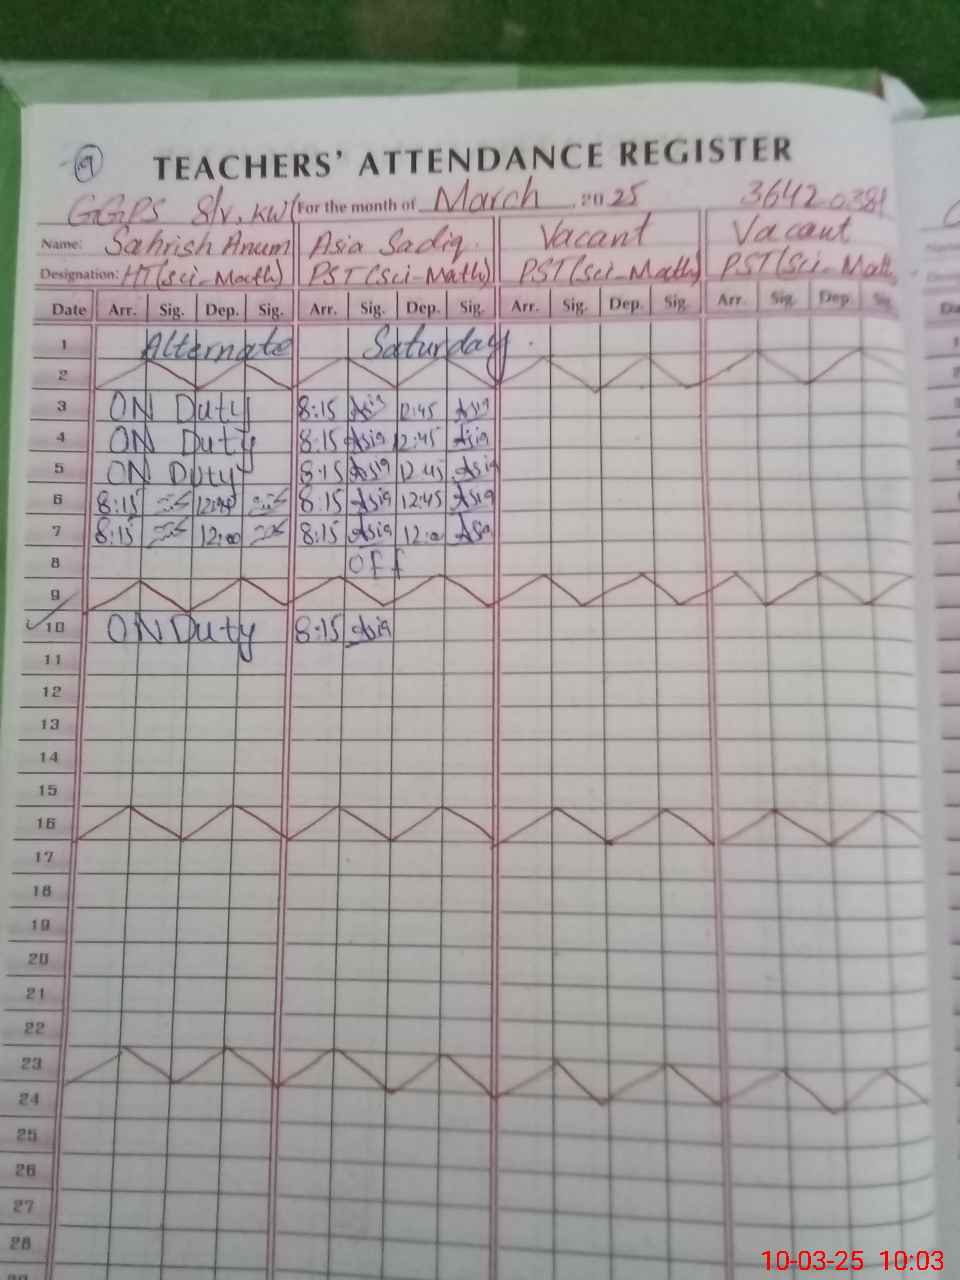 9
TEACHERS' ATTENDANCE REGISTER
GGPS 8/V, KW For the month of March 2025 36420381
Name: Sahrish Anum Asia Sadiq Vacant Vacant
Designation: HT(Sci-Math) PST(Sci-Math) PST(Sci-Math) PST(Sci-Math
Date Arr. Sig. Dep. Sig. Arr. Sig. Dep. Sig. Arr. Sig. Dep. Sig. Arr. Sig. Dep. Sig.
1 Alternate Saturday
2
3 ON Duty 8:15 Asia 12:45 Asia
4 ON Duty 8:15 Asia 12:45 Asia
5 ON Duty 8:15 Asia 12:45 Asia
6 8:15 12:45 8:15 Asia 12:45 Asia
7 8:15 12:00 8:15 Asia 12:00 Asia
8 OFF
9
10 ON Duty 8:15 Asia
11
12
13
14
15
16
17
18
19
20
21
22
23
24
25
26
27
28
10-03-25 10:03